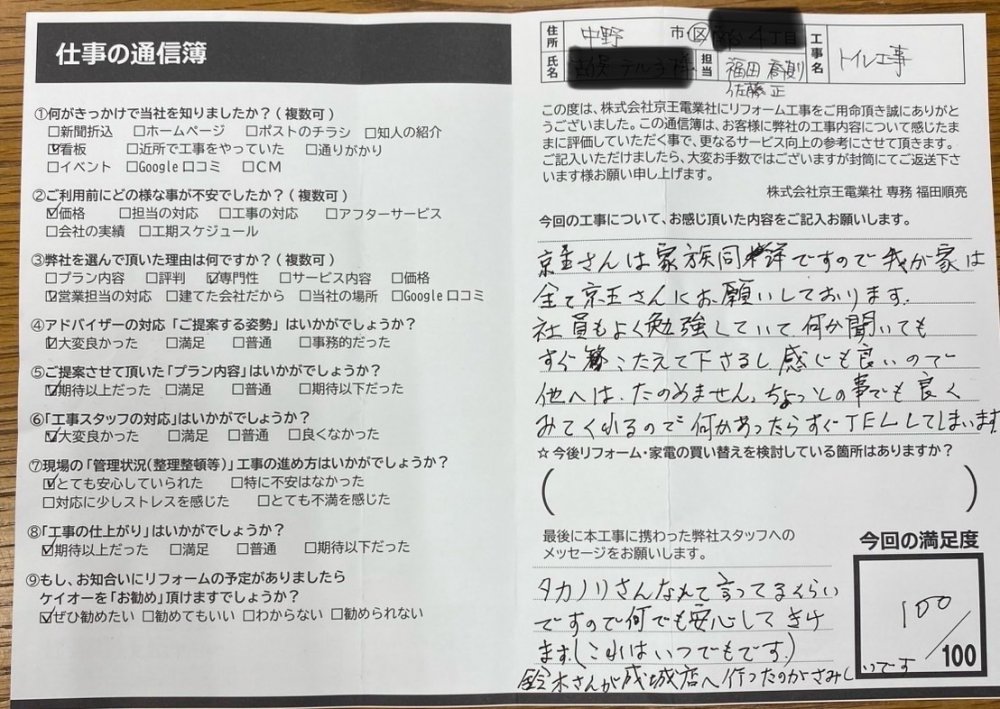 仕事の通信簿
①何がきっかけで当社を知りましたか?(複数可)
□新聞折込 □ホームページ □ポストのチラシ □知人の紹介
☑看板 □近所で工事をやっていた □通りがかり
□イベント □Google口コミ □CM
②ご利用前にどの様な事が不安でしたか?(複数可)
☑価格 □担当の対応 □工事の対応 □アフターサービス
□会社の実績 □工期スケジュール
③弊社を選んで頂いた理由は何ですか?(複数可)
□プラン内容 □評判 ☑専門性 □サービス内容 □価格
☑営業担当の対応 □建てた会社だから □当社の場所 □Google口コミ
④アドバイザーの対応「ご提案する姿勢」はいかがでしょうか?
☑大変良かった □満足 □普通 □事務的だった
⑤ご提案させて頂いた「プラン内容」はいかがでしょうか?
☑期待以上だった □満足 □普通 □期待以下だった
⑥「工事スタッフの対応」はいかがでしょうか?
☑大変良かった □満足 □普通 □良くなかった
⑦現場の「管理状況(整理整頓等)」工事の進め方はいかがでしょうか?
☑とても安心していられた □特に不安はなかった
□対応に少しストレスを感じた □とても不満を感じた
⑧「工事の仕上がり」はいかがでしょうか?
☑期待以上だった □満足 □普通 □期待以下だった
⑨もし、お知合いにリフォームの予定がありましたら
ケイオーを「お勧め」頂けますでしょうか?
☑ぜひ勧めたい □勧めてもいい □わからない □勧められない
住所 中野 市区 4丁目
氏名 担当 福田
佐藤 正
工事名 トイレ工事
この度は、株式会社京王電業社にリフォーム工事をご用命頂き誠にありがと
うございました。この通信簿は、お客様に弊社の工事内容について感じたま
まに評価していただく事で、更なるサービス向上の参考にさせて頂きます。
ご記入いただけましたら、大変お手数ではございますが封筒にてご返送下さ
います様お願い申し上げます。
株式会社京王電業社 専務 福田順亮
今回の工事について、お感じ頂いた内容をご記入お願いします。
京王さんは家族同様ですので我が家は
全て京王さんにお願いしております。
社員もよく勉強していて何か聞いても
すぐこたえて下さるし感じも良いので
他へは、たのめません。ちょっとの事でも良く
みてくれるので何かあったらすぐTELしてしまいます
☆今後リフォーム・家電の買い替えを検討している箇所はありますか?
最後に本工事に携わった弊社スタッフへの
メッセージをお願いします。
タカノリさんなんて言ってるくらい
ですので何でも安心してきけ
ます。(これはいつでもです。)
鈴木さんが成城店へ行ったのがさみしいです
今回の満足度
100/100